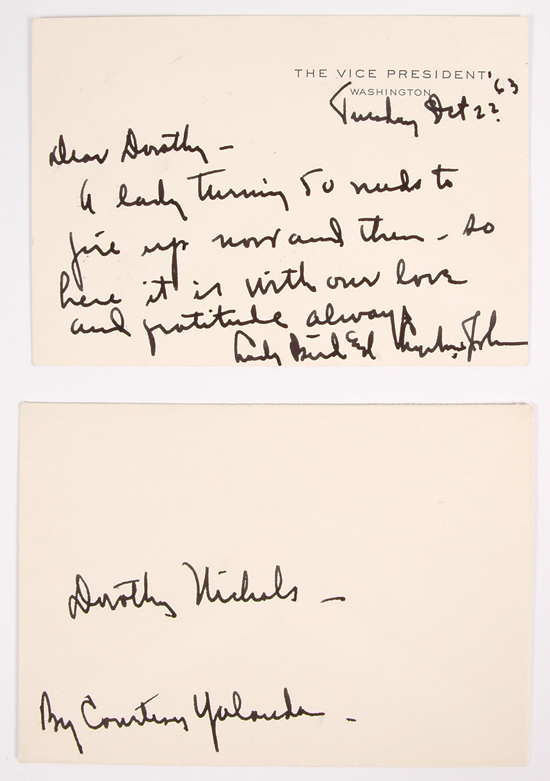 THE VICE PRESIDENT
WASHINGTON
Tuesday Oct 22 '63
Dear Dorothy -
A lady turning 50 needs to
fire up now and then - so
here it is with our love
and gratitude always
Lady Bird and Lyndon Johnson
Dorothy Nichols -
By Courtesy Yolanda -